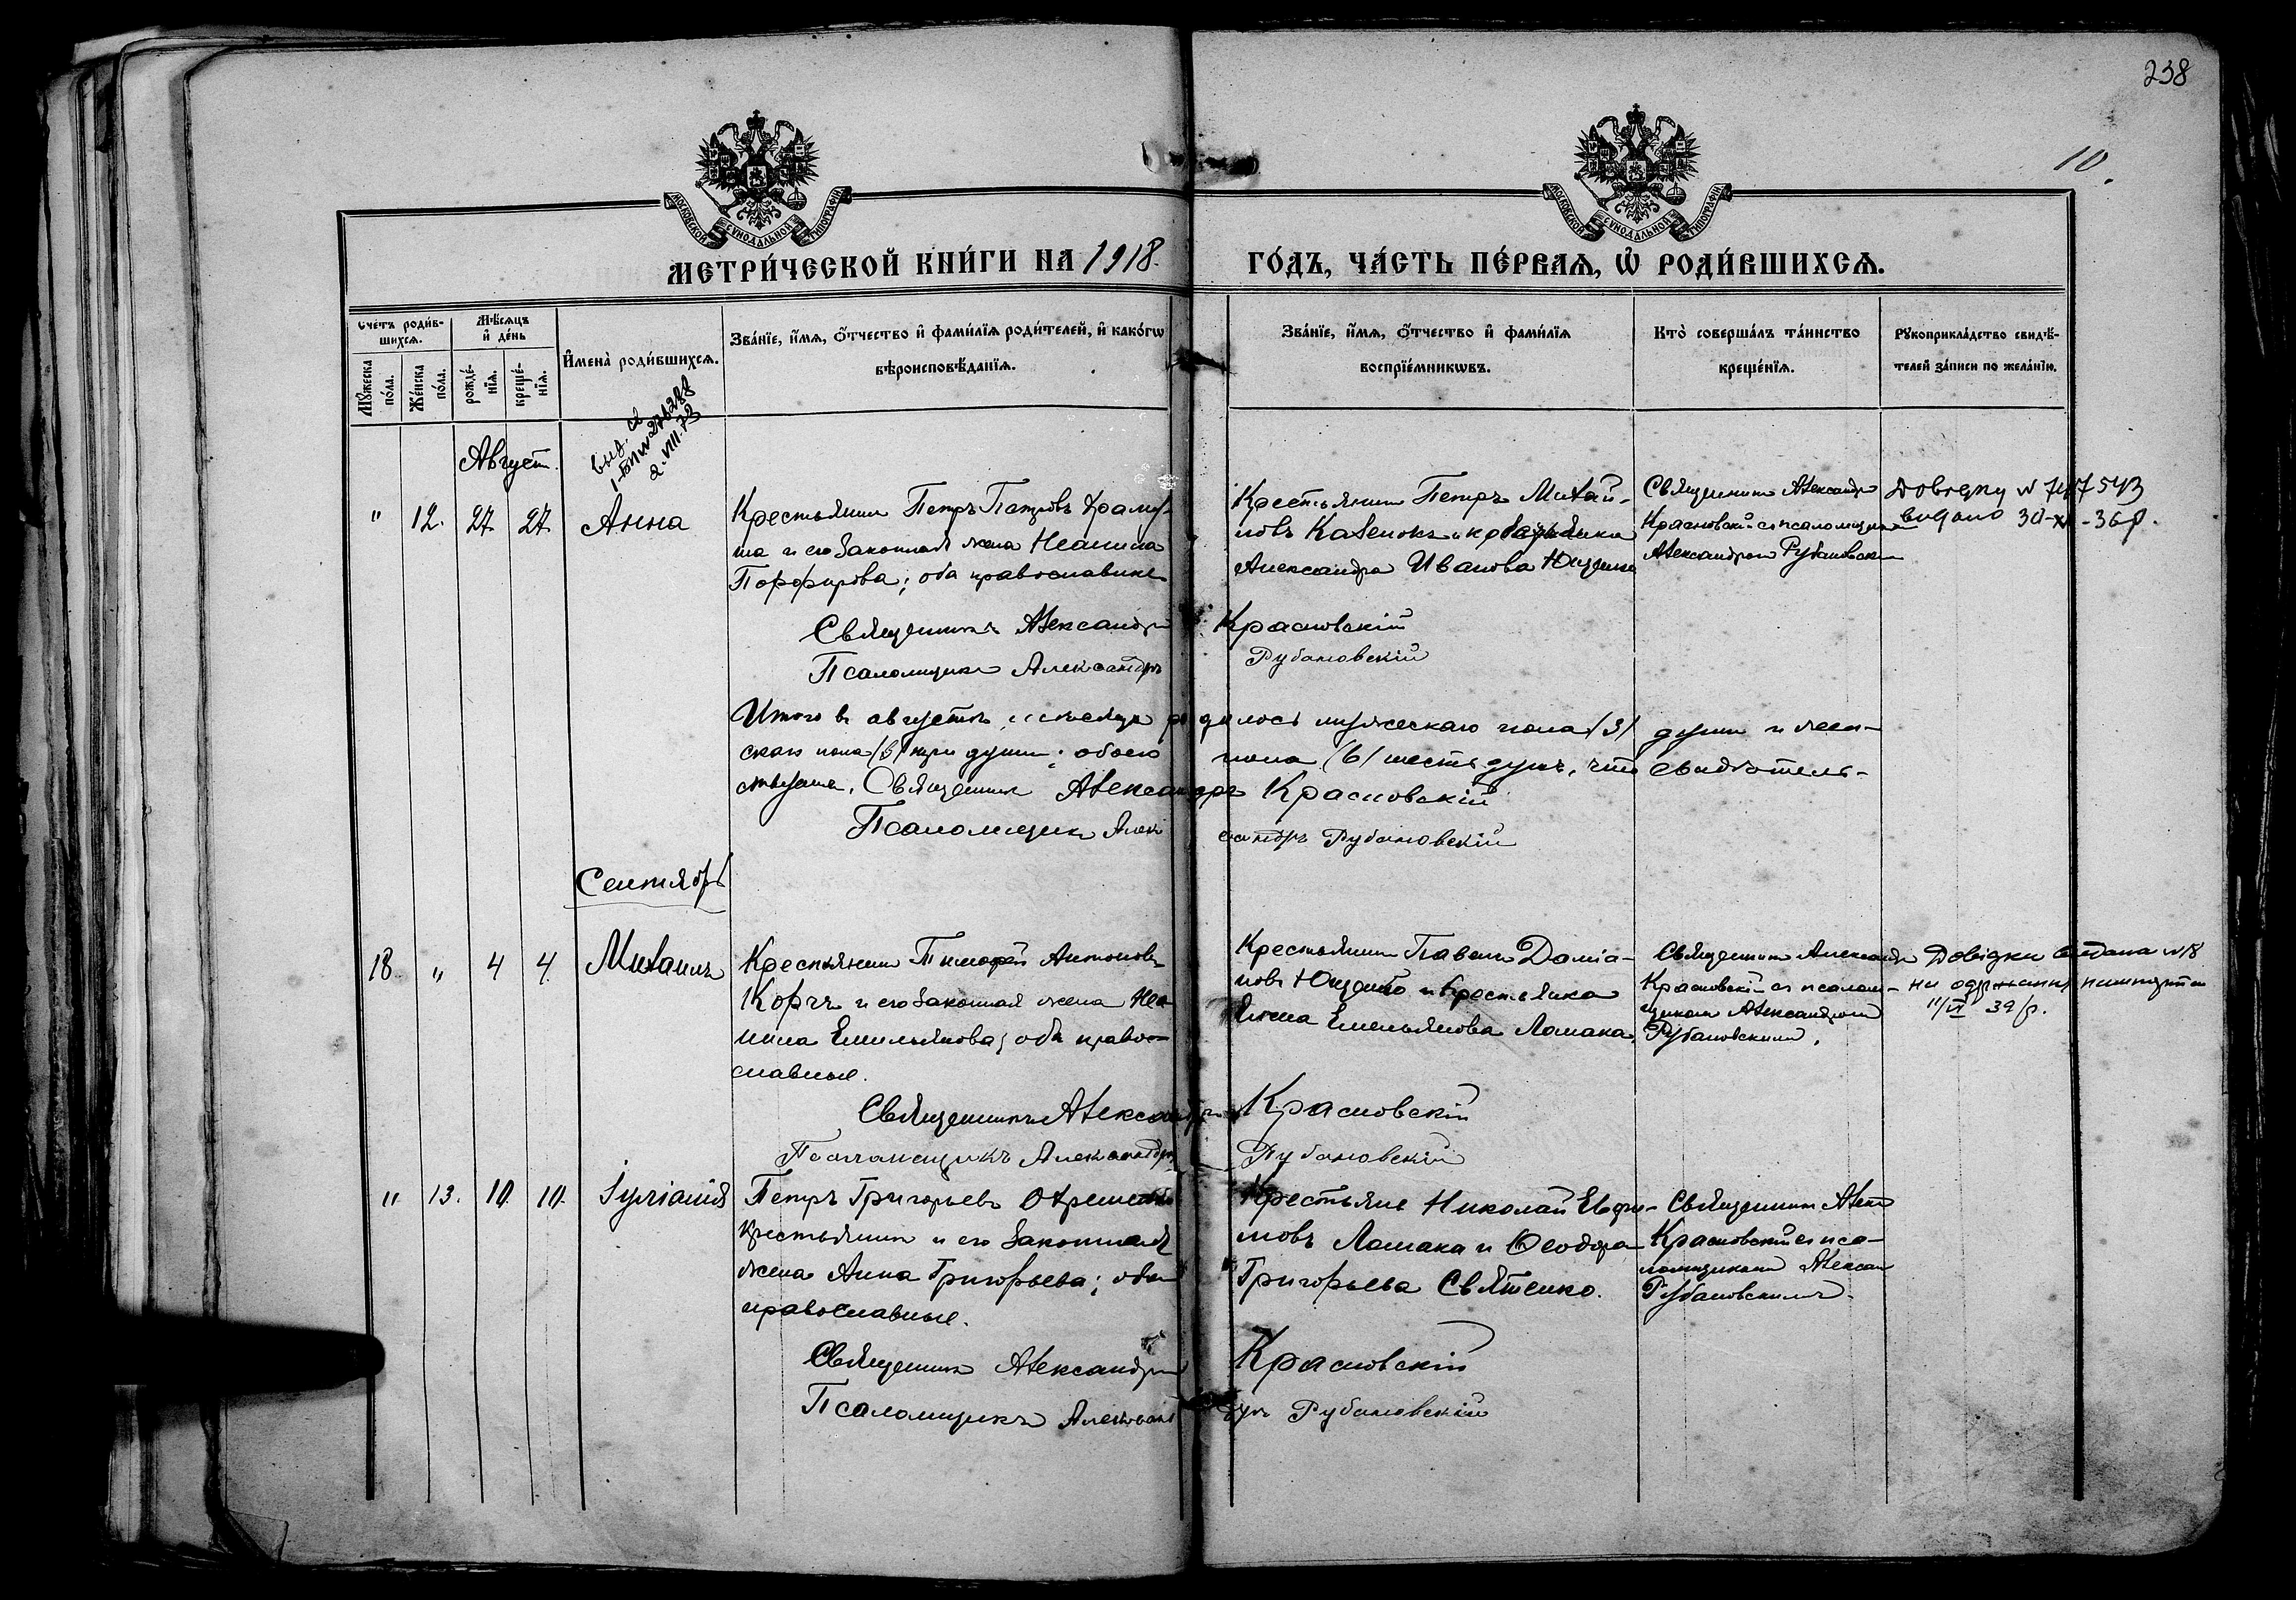 238
10.
МОСКОВСКОЙ СѴНОДАЛЬНОЙ ТИПОГРАФІИ
МОСКОВСКОЙ СѴНОДАЛЬНОЙ ТИПОГРАФІИ
МЕТРИ́ЧЕСКОЙ КНИ́ГИ НА 1918.
ГО́ДЪ, ЧА́СТЬ ПЕ́РВАѦ, Ѡ҆ РОДИ́ВШИХСѦ.
Счетъ роди́в-
шихсѧ.
Мѣ́сѧцъ
и҆ де́нь
Мꙋ́жеска по́ла.
Же́нска по́ла.
рожде́-
нїѧ.
креще́-
нїѧ.
И҆мена̀ роди́вшихсѧ.
Зва́нїе, и҆́мѧ, ѻ҆́тчество и҆ фами́лїѧ роди́телей, и҆ како́гѡ
вѣроисповѣ́данїѧ.
Зва́нїе, и҆́мѧ, ѻ҆́тчество и҆ фами́лїѧ
воспрїе́мникѡвъ.
Кто̀ соверша́лъ та́инство
креще́нїѧ.
Рꙋкоприкла́дство свидѣ́-
телей за́писи по жела́нїю.
Август.
"
12.
27.
27.
Анна
Крестьянин Петръ Петровъ
и его законная жена Неанила
Порфирова; оба православные
Крестьянин Петръ Михай-
ловъ и крестьянка
Александра Иванова Ющенко
Священник Александр
Красновскій с псаломщиком
Александром Рубановским
Довідку N
видано 30-XI-36 р.
Священникъ Александръ Красновскій
Псаломщикъ Александръ Рубановскій
Итого в августе месяце родилось мужескаго пола (3) души и жен-
скаго пола (3) три души; обоего пола (6) шесть душъ, что свидетель-
ствуем. Священник Александръ Красновскій
Псаломщик Александръ Рубановскій
Сентябрь
18
"
4
4.
Михаилъ
Крестьянин Тимофей Антоновъ
Корчъ и его законная жена Неа-
нила Емельянова; оба право-
славные.
Крестьянин Павелъ Даміа-
новъ Ющенко и крестьянка
Емельянова Ломака.
Священник Александр
Красновскій с псалом-
щиком Александром
Рубановским.
Довідки видана N 18
на одержання пашпорта
11/VI 39 р.
Священникъ Александръ Красновскій
Псаломщикъ Александръ Рубановскій
"
13.
10.
10.
Іуліанія
Петръ Григорьевъ
крестьянин и его законная
жена Анна Григорьева; оба
православные.
Крестьяне Николай Евфи-
мовъ Ломака и Феодора
Григорьева Святенко.
Священник Алекс
Красновскій с пса-
ломщиком Алексан
Рубановскимъ.
Священник Александръ Красновскій
Псаломщикъ Александръ Рубановскій